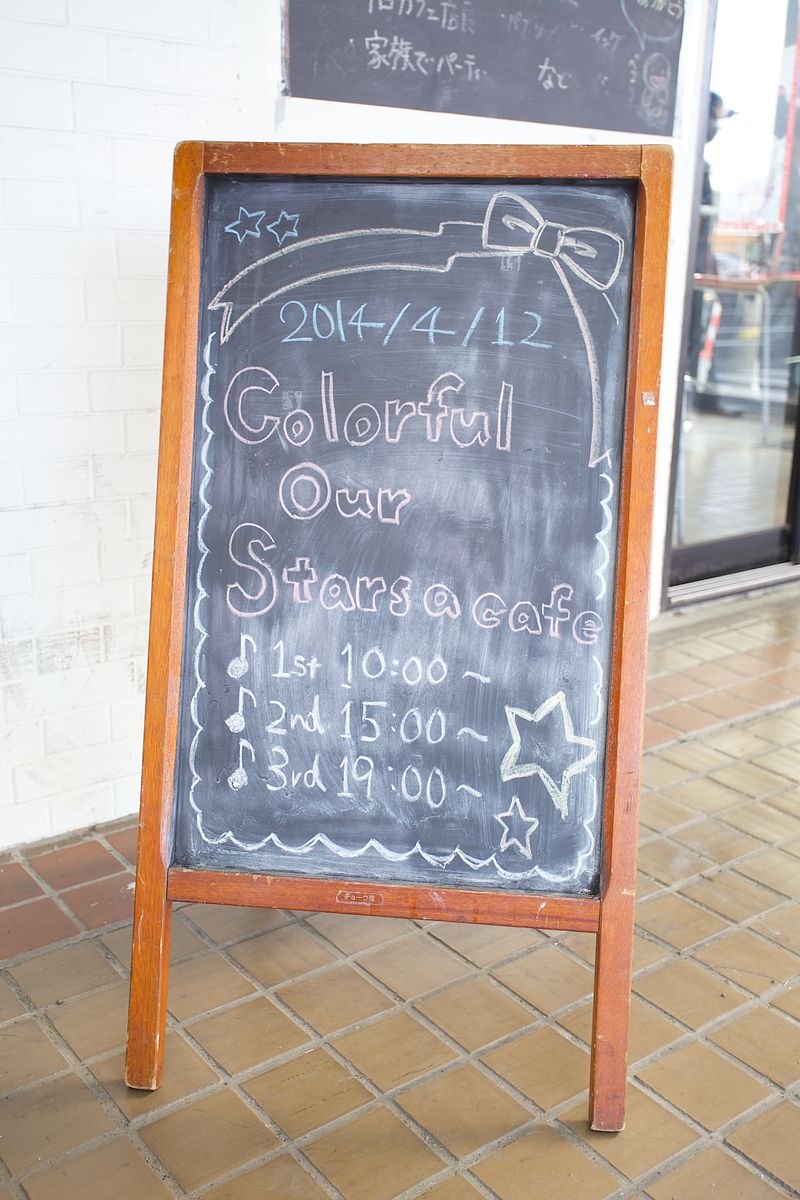 家族でパーティ など
2014/4/12
Colorful
Our
Stars a cafe
1st 10:00～
2nd 15:00～
3rd 19:00～